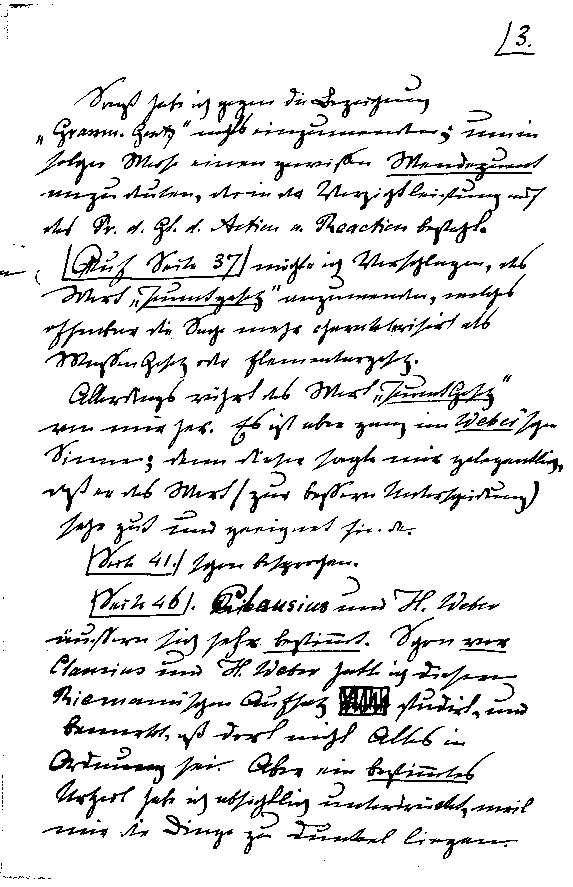 3.
Sonst habe ich gegen die Bezeichnung
„Gramm. Gesetz" nichts einzuwenden; um in
solcher Weise einen gewissen Wendepunct
anzudeuten, der in der Verzichtleistung auf
das Pr. d. Gl. d. Action u. Reaction besteht.
Auf Seite 37 möchte ich vorschlagen, das
Wort „Punctgesetz" anzuwenden, welches
offenbar die Sache mehr charakterisirt als
Massengesetz oder Elementargesetz.
Allerdings rührt das Wort „Punctgesetz"
von mir her. Es ist aber ganz im Weber'schen
Sinne; denn dieser sagte mir gelegentlich,
daß er das Wort (zur bessern Unterscheidung)
sehr gut und geeignet finde.
Seite 41. schon besprochen.
Seite 46. Clausius und H. Weber
äussern sich sehr bestimmt. Schon vor
Clausius und H. Weber hatte ich diesen
Riemann'schen Aufsatz studirt, und
bemerkt, daß dort nicht Alles in
Ordnung sei. Aber ein bestimmtes
Urtheil habe ich absichtlich unterdrückt, weil
mir die Dinge zu dunkel liegen.